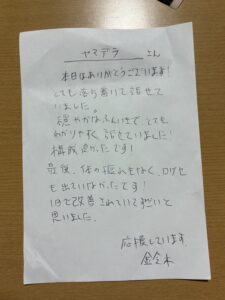 ヤマデラ さん
本日はありがとうございます!
とても落ち着いて話せて
いました。
穏やかなふんいきで とても
わかりやすく 話せていました!
構成 良かったです!
最後、体の揺れもなく、ログセ
も出ていなかったです!
1日で改善されていて凄いと
思いました。
応援しています